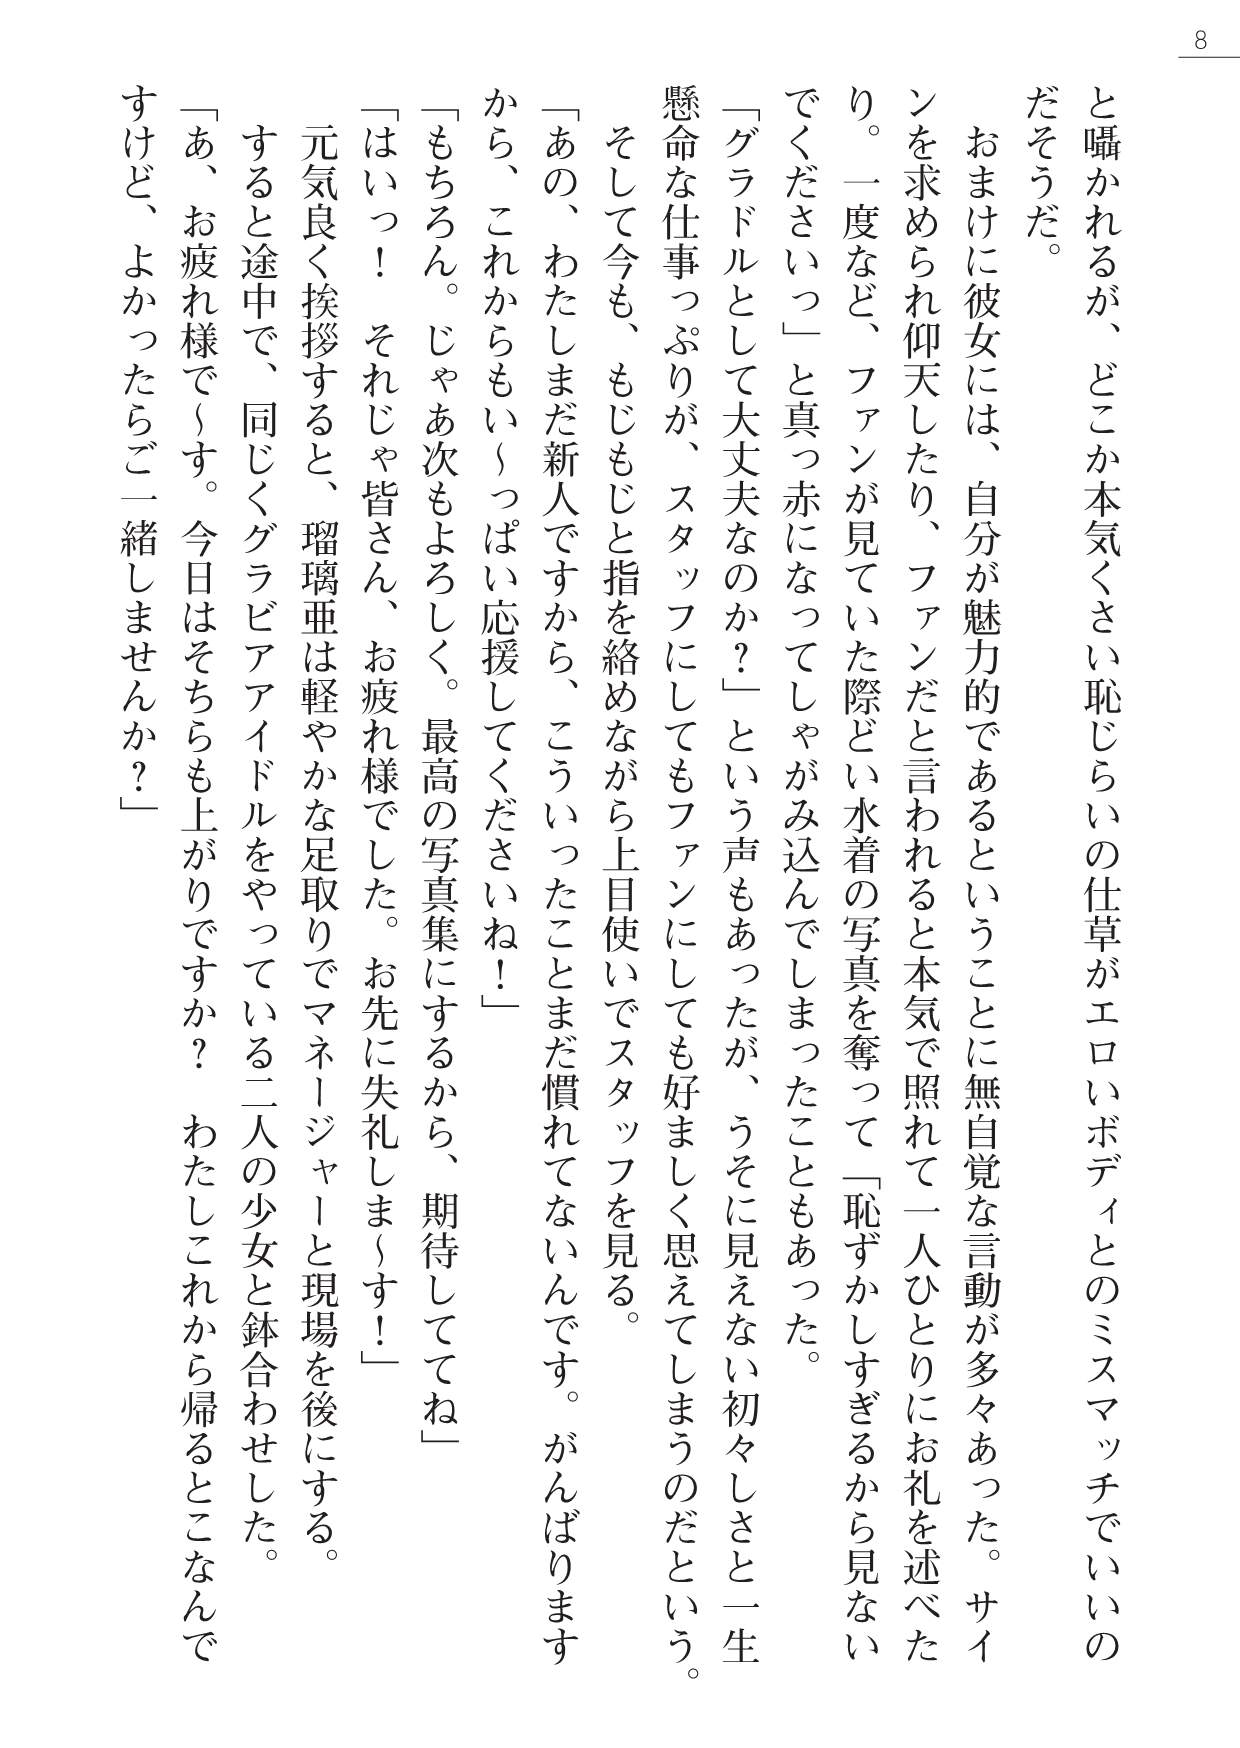 8
と囁かれるが、どこか本気くさい恥じらいの仕草がエロいボディとのミスマッチでいいの
だそうだ。
　おまけに彼女には、自分が魅力的であるということに無自覚な言動が多々あった。サイ
ンを求められ仰天したり、ファンだと言われると本気で照れて一人ひとりにお礼を述べた
り。一度など、ファンが見ていた際どい水着の写真を奪って「恥ずかしすぎるから見ない
でくださいっ」と真っ赤になってしゃがみ込んでしまったこともあった。
「グラドルとして大丈夫なのか？」という声もあったが、うそに見えない初々しさと一生
懸命な仕事っぷりが、スタッフにしてもファンにしても好ましく思えてしまうのだという。
　そして今も、もじもじと指を絡めながら上目使いでスタッフを見る。
「あの、わたしまだ新人ですから、こういったことまだ慣れてないんです。がんばります
から、これからもい～っぱい応援してくださいね！」
「もちろん。じゃあ次もよろしく。最高の写真集にするから、期待しててね」
「はいっ！　それじゃ皆さん、お疲れ様でした。お先に失礼しま～す！」
　元気良く挨拶すると、瑠璃亜は軽やかな足取りでマネージャーと現場を後にする。
　すると途中で、同じくグラビアアイドルをやっている二人の少女と鉢合わせした。
「あ、お疲れ様で～す。今日はそちらも上がりですか？　わたしこれから帰るとこなんで
すけど、よかったらご一緒しませんか？」